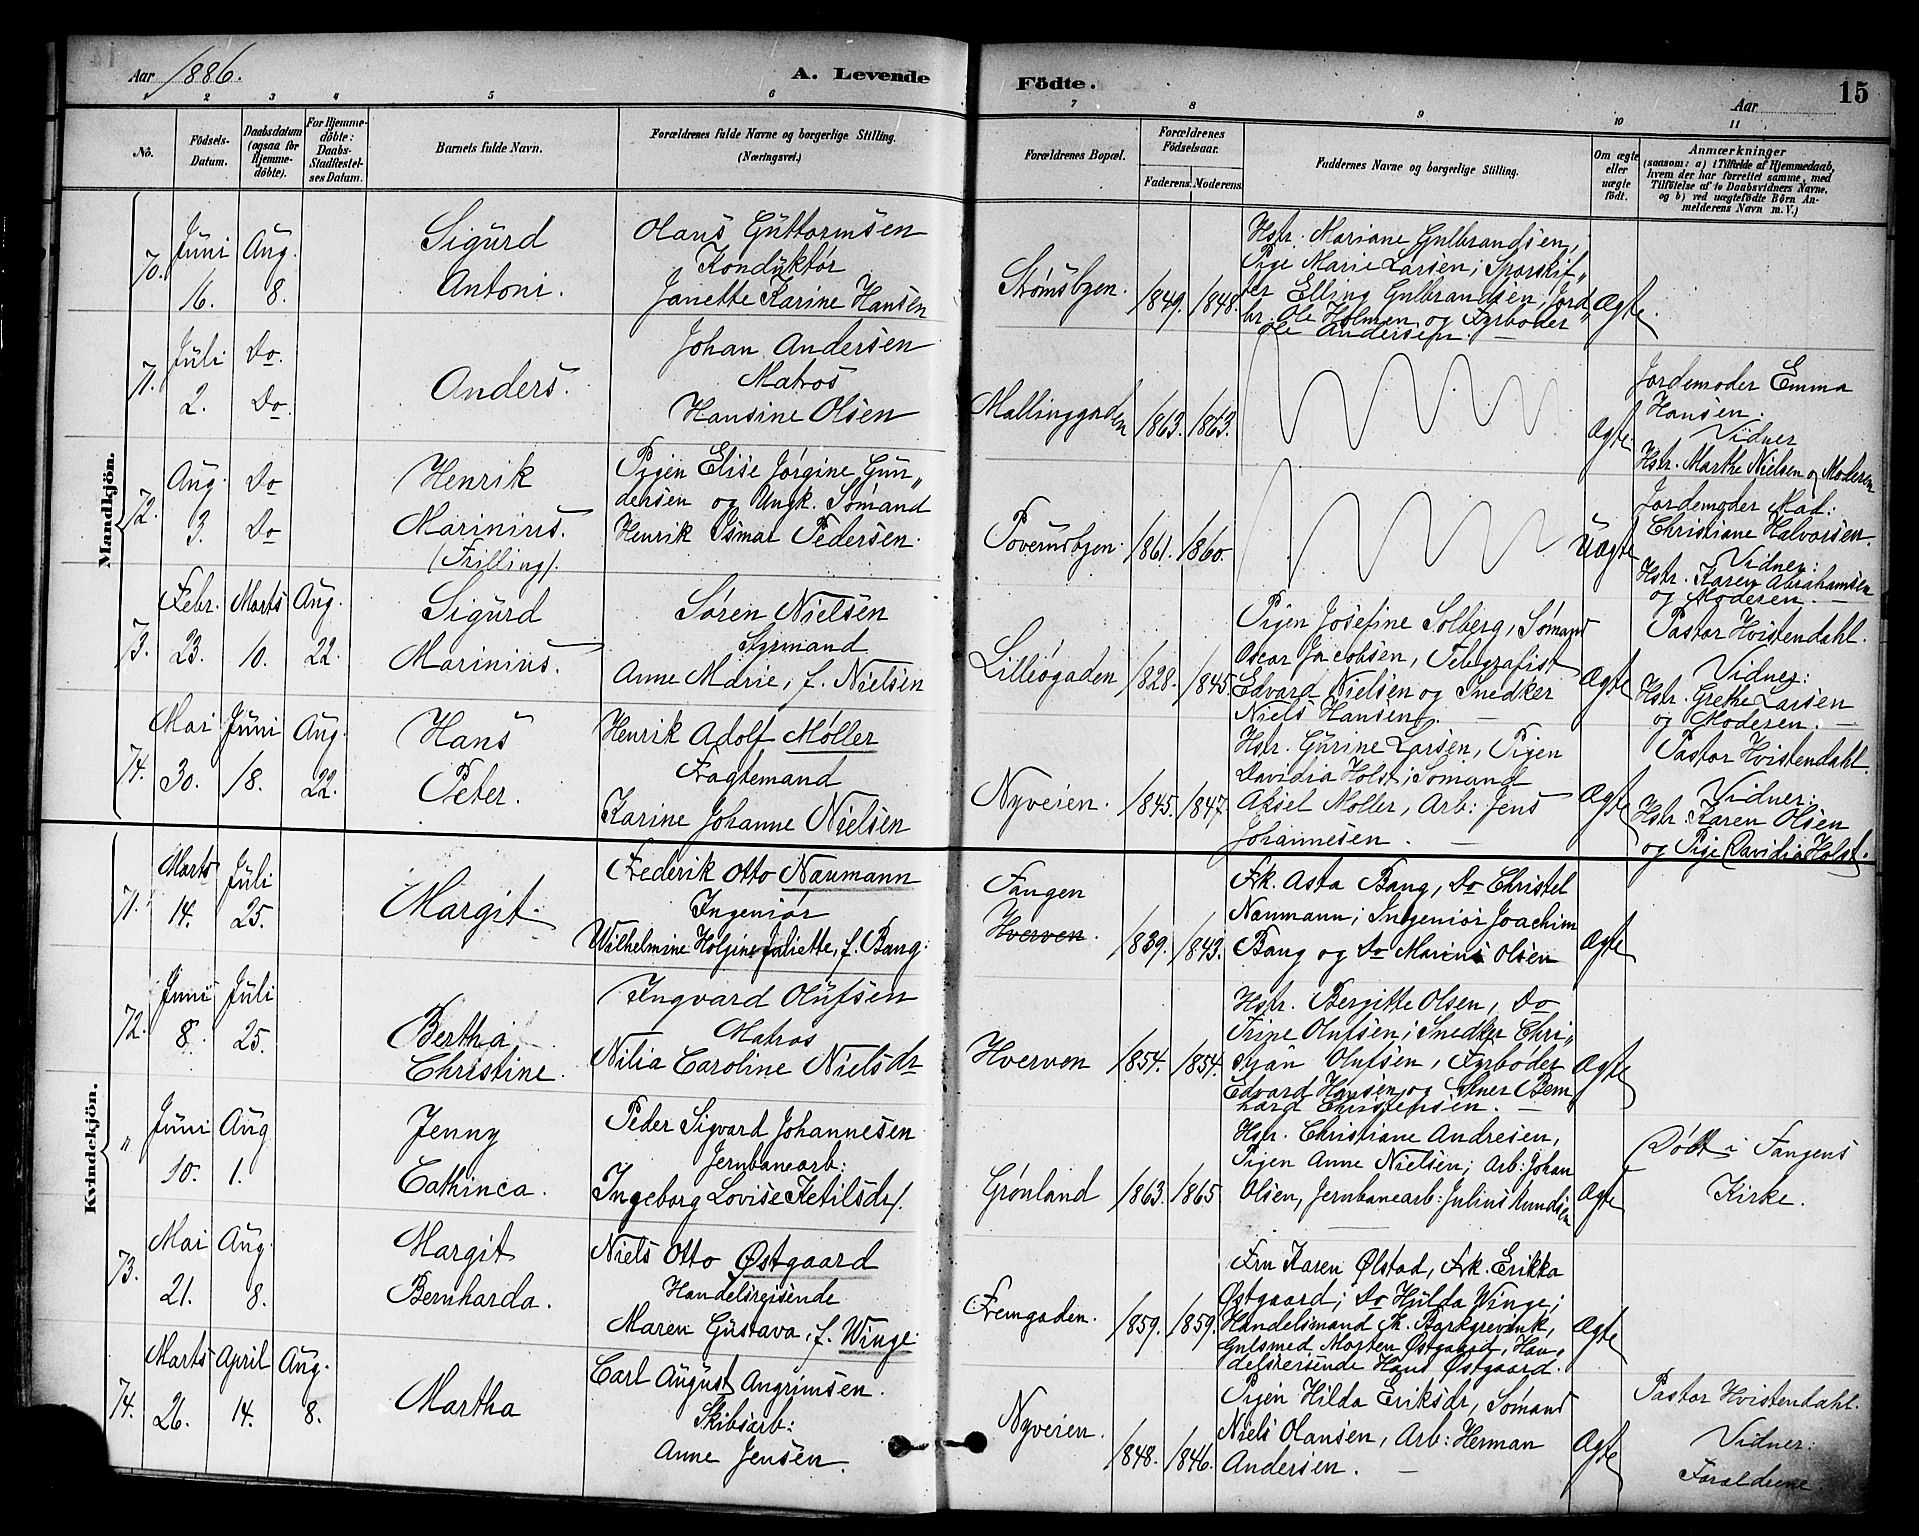 Aar 1886. A. Levende Födte. Aar 15
1 2 3 4 5 6 7 8 9 10 11
No.
Födsels-Datum.
Daabsdatum (ogsaa for Hjemmedöbte).
For Hjemmedöbte: Daabs-Stadfestelses Datum.
Barnets fulde Navn.
Forældrenes fulde Navne og borgerlige Stilling. (Næringsvei.)
Forældrenes Bopæl.
Forældrenes Födselsaar.
Faderens. Moderens.
Faddernes Navne og borgerlige Stilling.
Om ægte eller uægte födt.
Anmærkninger
(saasom: a) i Tilfælde af Hjemmedaab,
hvem der har forrettet samme, med
Tilföielse af to Daabsvidners Navne.
og b) ved uægtefödte Börn Anmelderens Navn m. V.)
Mandkjön.
70. Juni 16. Aug. 8.
Sigurd
Antoni.
Olaus Guttormsen
Konduktør
Janette Karine Hansen
Strømsbyen. 1849. 1848.
Hstr. Mariane Gulbrandsen,
Pige Marie Larsen; Sporskif„
ter Elling Gulbrandsen, Jord„
br. Ole Holmen og Fyrbøder
Ole Andersen. —
Ægte.
71. Juli 2. Do. Do.
Anders.
Johan Andersen
Matros
Hansine Olsen
Mallinggaden 1863. 1863.
Ægte.
Jordemoder Emma
Hansen.
Vidner
Hstr. Marthe Nielsen og Moderen
72. Aug. 3. Do Do
Henrik
Marinius.
(Trilling).
Pigen Elise Jørgine Gun„
dersen og Ungk. Sømand
Henrik Ismar Pedersen.
Toverudbyen. 1861. 1860.
Uægte
Jordemoder Mad:
Christiane Halvorsen.
Vidner:
Hstr. Karen Abrahamsen
og Moderen. —
73. Febr. 23. Marts 10. Aug. 22.
Sigurd
Marinius.
Søren Nielsen
Styrmand
Anne Marie, f. Nielsen
Lilleøgaden 1828. 1845.
Pigen Josefine Solberg, Sømand
Oscar Jacobsen, Telegrafist
Edvard Nielsen og Snedker
Niels Hansen. —
Ægte
Pastor Hvistendahl.
Vidner:
Hstr. Grethe Larsen
og Moderen. —
74. Mai 30. Juni 18. Aug. 22.
Hans
Peter.
Henrik Adolf Møller
Fragtemand
Karine Johanne Nielsen
Nyveien. 1845. 1847.
Hstr. Gurine Larsen, Pigen
Davidia Holst; Sømand
Aksel Møller, Arb: Jens
Johannesen. —
Ægte
Pastor Hvistendahl.
Vidner:
Hstr. Karen Olsen
og Pige Davidia Holst.
Kvindekjön.
71. Marts 14. Juli 25.
Margit.
Frederik Otto Naumann
Ingeniør
Wilhelmine Holgine Juliette, f. Bang.
Tangen
Hverven. 1839. 1843.
Frk. Asta Bang, Do Christel
Naumann; Ingeniør Joachim
Bang og Do Marius Olsen
Ægte
72. Juni 8. Juli 25.
Bertha
Christine.
Ingvard Olufsen
Matros
Nilia Caroline Nielsdr
Hverven 1854. 1854.
Hstr. Bergitte Olsen, Do
Trine Olufsen; Snedker Chri„
stian Olufsen, Fyrbøder
Edvard Hansen og Bern
hard Christensen. —
Ægte
„ Juni 10. Aug 1.
Jenny
Cathinca.
Peder Sigvard Johannesen
Jernbanearb:
Ingeborg Lovise Ketilsdr.
Grønland 1863. 1865
Hstr. Christiane Andresen,
Pigen Anne Nielsen; Arb: Johan
Olsen, Jernbanearb: Julius Knudsen
Ægte
Døbt i Tangens
Kirke.
73. Mai 21. Aug. 8.
Margit
Bernharda.
Niels Otto Østgaard
Handelsreisende
Maren Gustava, f. Winge.
Fremgaden. 1859. 1859.
Fru Karen Ølstad, Frk. Erikka
Østgaard; Do Hulda Winge;
Handelsmand Borkgrevink,
Gulsmed Morten Østgaard, Han„
delsreisende Hans Østgaard.
Ægte
74. Marts 26. April 14. Aug. 8.
Martha
Carl August Angrimsen.
Skibsarb:
Anne Jensen.
Nyveien. 1848. 1846.
Pigen Hilda Eriksdr, Sømand
Niels Olansen, Arb: Herman
Andersen. —
Ægte
Pastor Hvistendahl.
Vidner:
Forældrene.